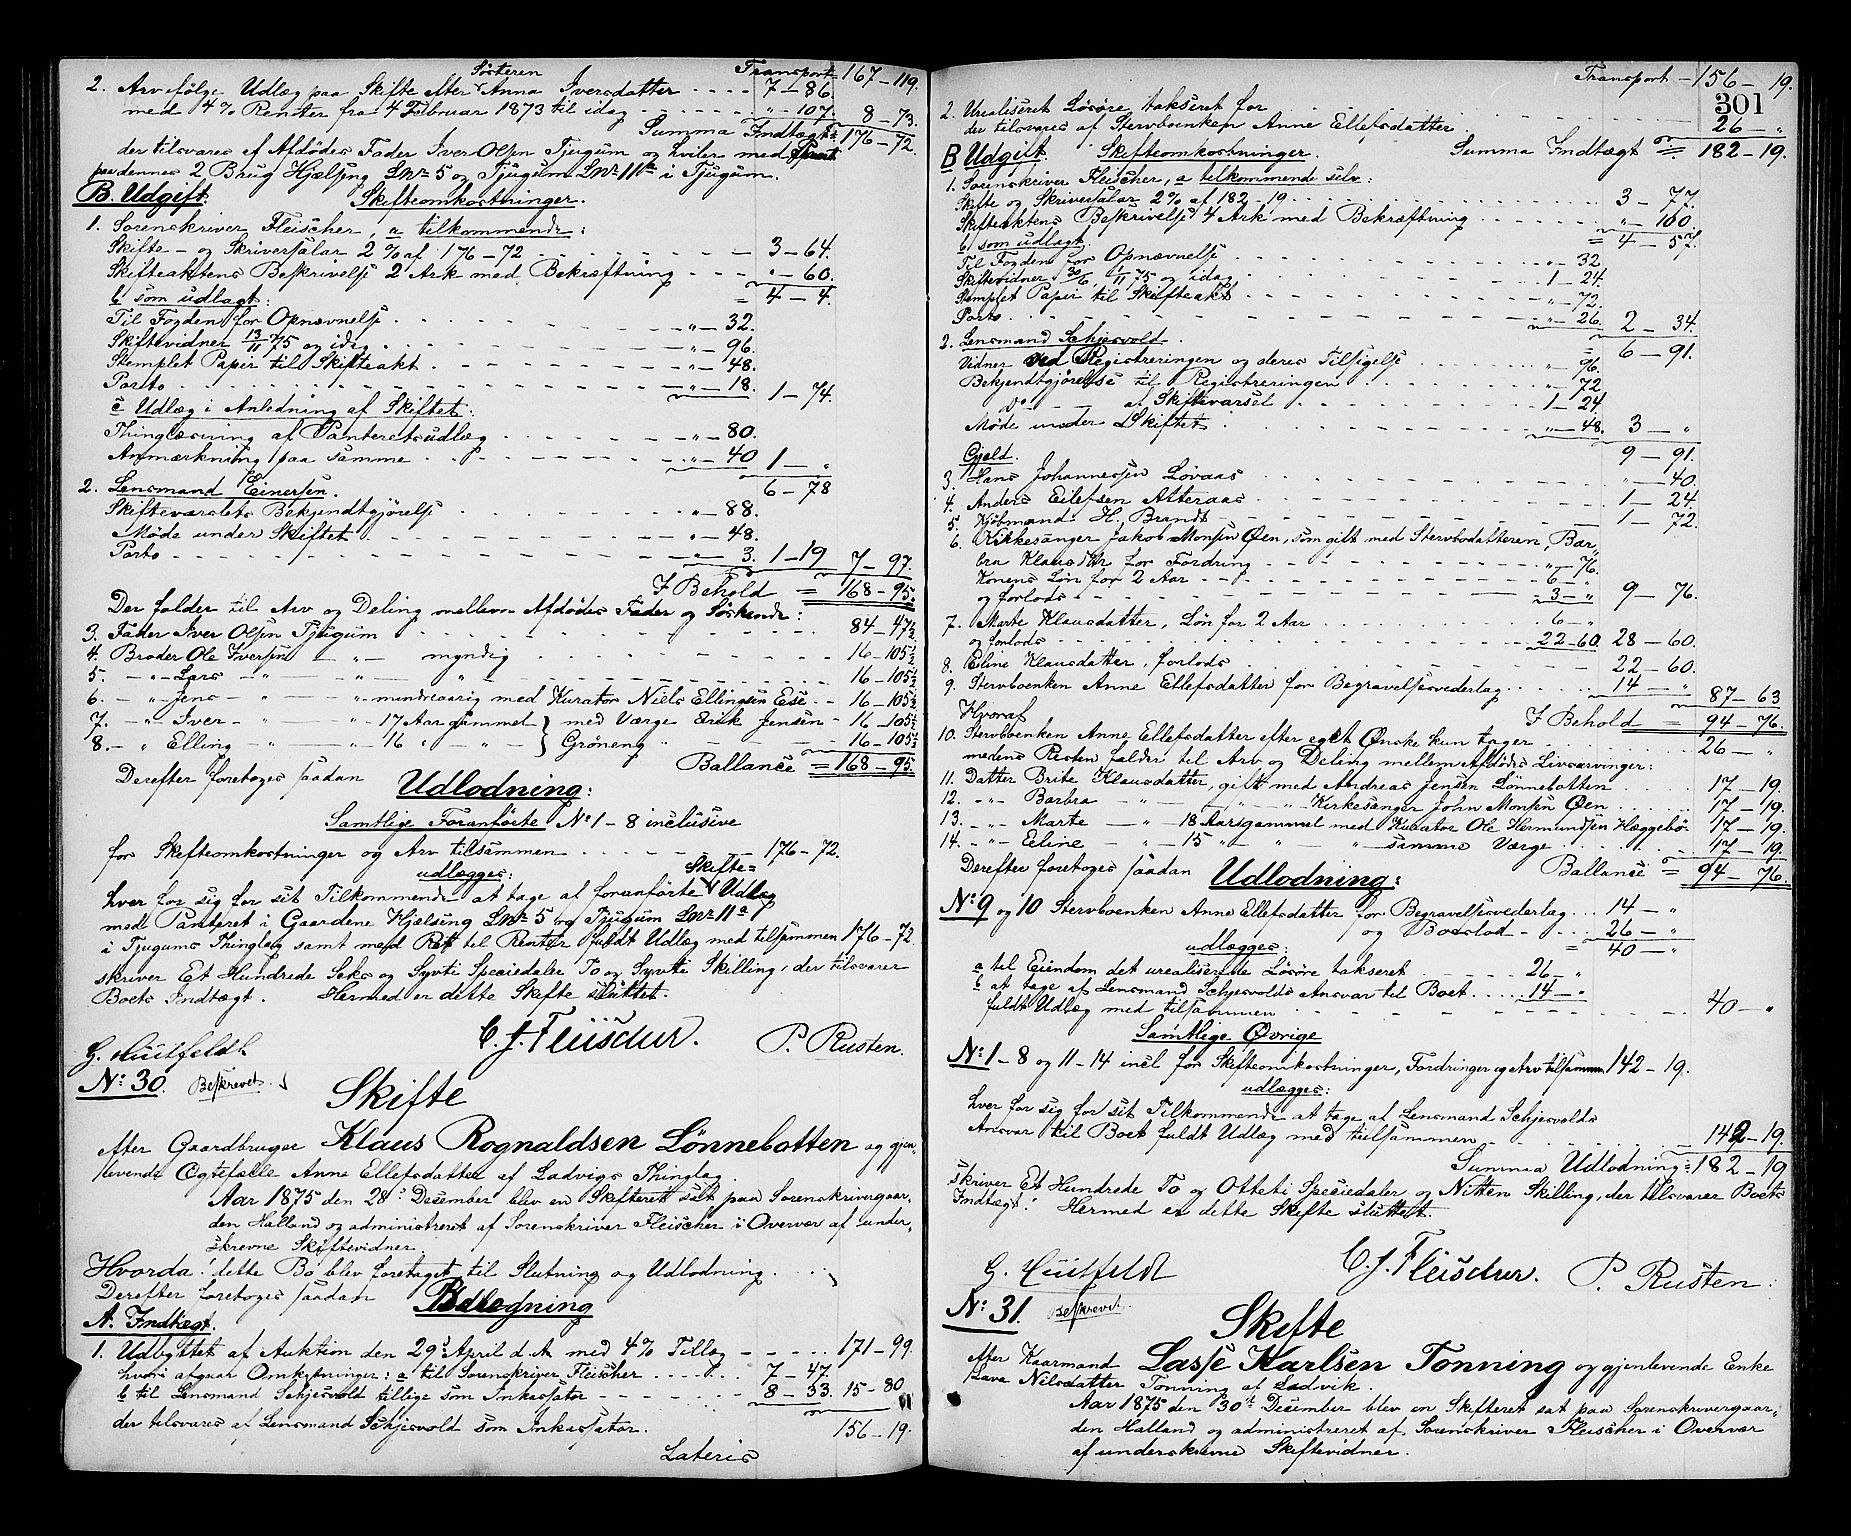 Transport 167 – 119.
Søsteren
2. Arvefølge Udlæg paa Skifte efter Anna Iversdatter . . . . 7 – 86.
med 4% Renter fra 4 Februar 1873 til idag . . . . „ – 107. 8 – 73.
Summa Indtægt = 176 – 72.
der tilsvares af Afdødes Fader Iver Olsen Tjugum og hviler med Pant
paa dennes 2 Brug Hjelsing LNr 5 og Tjugum LNr 11a i Tjugum.
B. Udgift. Skifteomkostninger.
1. Sorenskriver Fleischer, a tilkommende:
Skifte- og Skriversalær 2% af 176 – 72 . . . . 3 – 64.
Skifteaktens Beskrivelse 2 Ark med Bekræftning . . . . „ – 60.
b som udlagt: = 4 – 4.
Til Fogden for Opnævnelse . . . . „ – 32.
Skiftevidner 13/11 75 og idag . . . . „ – 96.
Stemplet Papir til Skifteakt . . . . „ – 48.
Porto . . . . „ – 18. 1 – 74.
c Udlæg i Anledning af Skiftet:
Thinglæsning af Panteretsudlæg . . . . „ – 80.
Anmærkning paa samme . . . . „ – 40 1 – „
2. Lensmand Einersen. 6 – 78
Skiftevarslets Bekjendtgjørelse . . . . „ – 88.
Møde under Skiftet . . . . „ – 48.
Porto . . . . „ – 3. 1 – 19 7 – 97.
I Behold = 168 – 95.
Der falder til Arv og Deling mellem Afdødes Fader og Søskende:
3. Fader Iver Olsen Tjugum . . . . 84 – 47½
4. Broder Ole Iversen – „ – myndig . . . . 16 – 105½
5. – „ – Lars – „ – „ – „ . . . . 16 – 105½
6. – „ – Jens – „ „ mindreaarig med Kurator Niels Ellingsen Ese . . 16 – 105½
7. – „ – Iver – „ „ – 17 Aar gammel } med Værge Erik Jensen – 16 – 105½
8. – „ Elling – „ – „ – 16 „ – „ – } Grøneng . . . . 16 – 105½
Ballance = 168 – 95.
Derefter foretoges saadan
Udlodning:
Samtlige Foranførte No 1 – 8 inclusive
for Skifteomkostninger og Arv tilsammen . . . . 176 – 72.
udlægges: Skifte=
hver for sig for sit Tilkommende at tage af foranførte Udlæg
med Panteret i Gaardene Hjelsing LNr 5 og Tjugum LNr 11a
i Tjugums Thinglag samt med Ret til Renter fuldt Udlæg med tilsammen 176 – 72.
skriver Et Hundrede Seks og Sytti Speciedaler To og Sytti Skilling, der tilsvarer
Boets Indtægt. Hermed er dette Skifte sluttet.
G. Huitfeldt C. J. Fleischer. P. Rusten.
No 30. Beskrevet.
Skifte
efter Gaardbruger Klaus Rognaldsen Lønnebotten og gjen-
levende Ægtefælle Anne Ellefsdatter af Ladvigs Thinglag.
Aar 1875 den 28de December blev en Skifteret sat paa Sorenskrivergaar-
den Halland og administreret af Sorenskriver Fleischer i Overvær af under-
skrevne Skiftevidner.
Hvorda: dette Bo blev foretaget til Slutning og Udlodning. . . .
Derefter foretoges saadan Udlodning
A. Indtægt.
1. Udbyttet af Auktion den 29de April d. A. med 4% Tillæg . . . . 171 – 99.
hvori afgaar Omkostninger: a til Sorenskriver Fleischer . . . . 7 – 47.
b til Lensmand Schjesvold tillige som Inkassator . . . . 8 – 33. 15 – 80
der tilsvares af Lensmand Schjesvold som Inkassator. 156 – 19.
Lateris
Transport – 156 – 19.
301
2. Urealiseret Løsøre takseret for
der tilsvares af Stervboenken Anne Ellefsdatter . . . . 26 – „
B Udgift. Skifteomkostninger. Summa Indtægt = 182 – 19.
1. Sorenskriver Fleischer, a tilkommende selv:
Skifte og Skriversalær 2% af 182 – 19 . . . . 3 – 77.
Skifteaktens Beskrivelse 4 Ark med Bekræftning . . . . „ – 100.
b som udlagt. = 4 – 57.
Til Fogden for Opnævnelse . . . . „ – 32.
Skiftevidner 30/6, 1/11 75 og idag . . . . 1 – 24.
Stemplet Papir til Skifteakt . . . . „ – 72.
Porto . . . . „ – 26. 2 – 34.
2. Lensmand Schjesvold. = 6 – 91.
Vidner ved Registreringen og deres Tilsigelse . . . . „ – 96.
Bekjendtgjørelse til Registreringen . . . . „ – 72
Do – af Skiftevarsel . . . . 1 – 24.
Møde under Skiftet . . . . „ – 48. 3 – „
Gjeld. 9 – 91.
3. Hans Johannessen Løvaas . . . . „ – 40.
4. Anders Eilefsen Atteraas . . . . 1 – 24.
5. Kjøbmand H. Brandt . . . . 1 – 72.
6. Kirkesanger Jakob Monsen Øen, som gift med Stervbodatteren, Bar-
bra Klausdtr for Fordring . . . . „ – 76.
Konens Løn for 2 Aar . . . . 6 – „
og forlods . . . . 3 – „ 9 – 76.
7. Marte Klausdatter, Løn for 2 Aar . . . . 6 – „
og forlods . . . . 22 – 60. 28 – 60.
8. Eline Klausdatter, forlods . . . . 22 – 60.
9. Stervboenken Anne Ellefsdatter for Begravelsesvederlag . . . . 14 – „ 87 – 63
Hvoraf I Behold = 94 – 76.
10. Stervboenken Anne Ellefsdatter efter eget Ønske kun tager . . . . 26 – „
medens Resten falder til Arv og Deling mellem Afdødes Livsarvinger:
11. Datter Brite Klausdatter, gift med Andreas Jensen Lønnebotten . . . . 17 – 19.
12. – „ – Barbra – „ – „ – „ – Kirkesanger John Monsen Øen . . . . 17 – 19.
13. – „ – Marte – „ – 18 Aar gammel med Kurator Ole Hermundsen Hæggebø. 17 – 19.
14. – „ – Eline – „ – 15 „ – „ – „ samme Værge . . . . 17 – 19.
Derefter foretoges saadan Udlodning: Ballance = 94 – 76.
No 9 og 10 Stervboenken Anne Ellefsdatter for Begravelsesvederlag . . . 14 – „
og Boeslod . . . . 26 – „
udlægges: = 40 – „
a til Eiendom det urealiserede Løsøre takseret . . . . 26 – „
b at tage af Lensmand Schjesvolds Ansvar til Boet . . . . 14 – „
fuldt Udlæg med tilsammen . . . . 40 – „
Samtlige Øvrige
No 1 – 8 og 11 – 14 incl for Skifteomkostninger, Fordringer og Arv tilsammen 142 – 19.
udlægges:
hver for sig for sit Tilkommende at tage af Lensmand Schjesvolds
Ansvar til Boet fuldt Udlæg med tilsammen . . . . 142 – 19.
Summa Udlodning = 182 – 19
skriver Et Hundrede To og Otteti Speciedaler og Nitten Skilling, der tilsvarer Boets
Indtægt. Hermed er dette Skifte sluttet.
G. Huitfeldt C. J. Fleischer. P. Rusten.
No 31. Beskrevet.
Skifte
efter Kaarmand Lasse Karlsen Tonning og gjenlevende Enke
Nilsdatter Tonning af Ladvik.
Aar 1875 den 30te December blev en Skifteret sat paa Sorenskrivergaar-
den Halland og administreret af Sorenskriver Fleischer i Overvær
af underskrevne Skiftevidner.